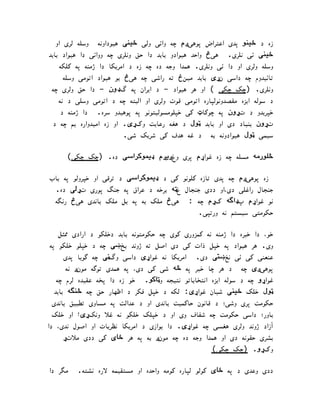 زه د ځينو پدې اعتراض پوهېږم چه وائی ولی ځينی هيوادونه وسله لری او
ځينی نی نلری. هيڅ واحد هيوادو بايد دا حق ونلری چه ووائی دا هيواد بايد
وسله ولری او دا نی ونلری. همدا وجه ده چه زه د امريکا دا ژمنه په کلکه
تائيدوم چه داسی نړۍ بايد مينځ ته راشی چه هيڅ يو هيواد اتومی وسله
ونلری. (چک چکی) او هر هيواد – د ايران په ګډون – دا حق ولری چه
د سوله ايزه مقصدونوليپاره اتومی قوت ولری او البته چه د اتومی وسلی د نه
خپريدو د تړون په چوکاټ کی خپلمسوليتونو په پوهيدو سره. دا ژمنه د
تړون بنياد دی او بايد ټول د هغه رعايت وکړی. او زه اميدواره يم چه د
سيمی ټول هيوادونه به د غه هدف کی شريک شی.
څلورمه مسله چه زه غواړم پری وغږيږم ډيموکراسی ده. (چک چکی)
زه پوهېږم چه پدی تازه کلونو کی د ډيموکراسی د ترقی او خپرولو په باب
جنجال راغلی دی،او ددی جنجال څه برخه د عراق په جنګ پوری تړلی ده.
نو غواړم ښداګه کړم چه : هيڅ ملک به په بل ملک باندی هيڅ رنګه
حکومتی سيستم نه ورتپی.
خو. دا خبره دا ژمنه نه کمزوری کوی چه حکومتونه بايد دخلکو د ارادی ممثل
وی. هر هيواد په خپل ذات کی دی اصل ته ژوند بخښی چه د خپلو خلکو په
عنعنی کی نی نښتی دی. امريکا نه غواړی داسی وګڼی چه ګويا پدی
پوهېږی چه د هر چا خير په څه شی کی دی، په همدی توګه مونږ نه
غواړو چه د سوله ايزه انتخاباتو نتيجه وټاکو. خو زه دا پخه عقيده لرم چه
ټول خلک ځينی شيان غواړی: لکه د خپل فکر د اظهار حق چه څنګه بايد
حکومت پری وشی؛ د قانون حاکميت باندی او د عدالت په مساوی تطبيق باندی
باور؛ داسی حکومت چه شفاف وی او د خپلک خلکو نه غلا ونکړی؛ او خلک
آزاد ژوند ولری هغسی چه غواړی. دا يوازی د امريکا نظريات او اصول ندی، دا
بشری حقونه دی او همدا وجه ده چه مونږ به په هر ځای کی ددی ملاتړ
وکړو. (چک چکی)
ددی وعدی د په ځای کولو لپاره کومه واحده او مستقيمه لاره نشته. مګر دا